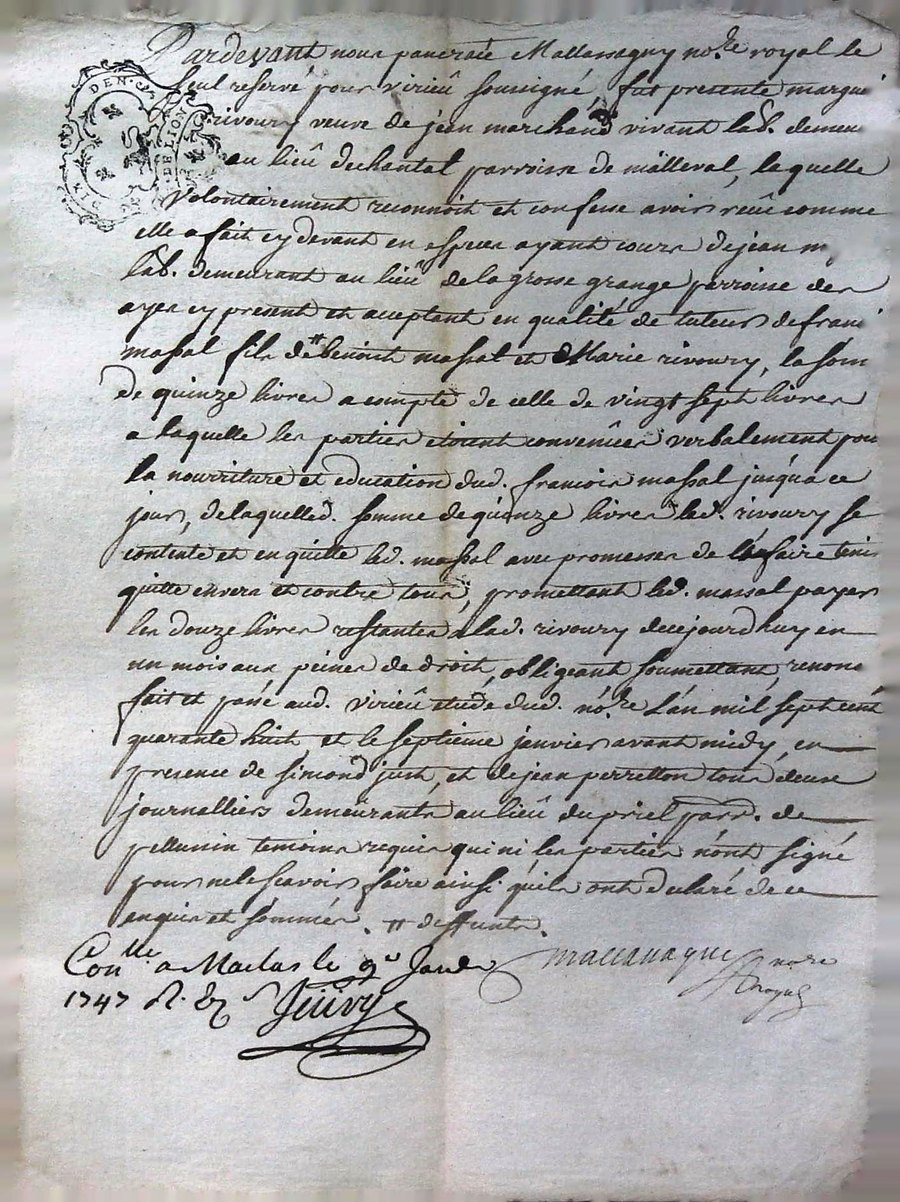 Pardevant nous pancrace Mallassagny no.re royal le
seul reservé pour virieû soussigné fut presente margué
rivoury veuve de jean marchand vivant lab. demeu
au lieû dechantal parroisse de mâlleval, laquelle
volontairement reconnoit et confesse avoir reciie comme
elle a fait cy devant en especes ayant cours de jean m
lab. demeurant au lieû de la grosse grange parroisse des
ayes cy present et aceptant en qualité de tuteur de franc
massal fils de # benoit massal et Marie rivoury, la som
de quinze livres a compte de celle de vingt sept livres
a laquelle les parties etoient convenûes verbalement pour
la nourriture et education dud. francois massal jusqua ce
jour, de laquelled. somme de quinze livres lad. rivoury se
contente et en quitte led. massal avec promesses de l'en faire tenir
quitte envers et contre tous, promettant led. massal payer
les douze livres restantes a lad. rivoury decejourdhuy en
un mois aux peines de droit, obligeant soumettant, renonc
fait et passé aud. virieû etude dud. no.re L'an mil sept cent
quarante huit et le septieme janvier avant midy, en
presence de simond just, et de jean perretton tous deux
journalliers demeûrants au lieû du priel parr. de
pellussin temoins requis qui ni les parties n'ont signé
pour ne le scavoir faire ainsi qu'ils ont declaré de ce
enquis et sommés. # deffunts.
Con.lle a Maclas le 9e Janv
1747 R.
mallassagny no.re
royal
GEN. DE LION